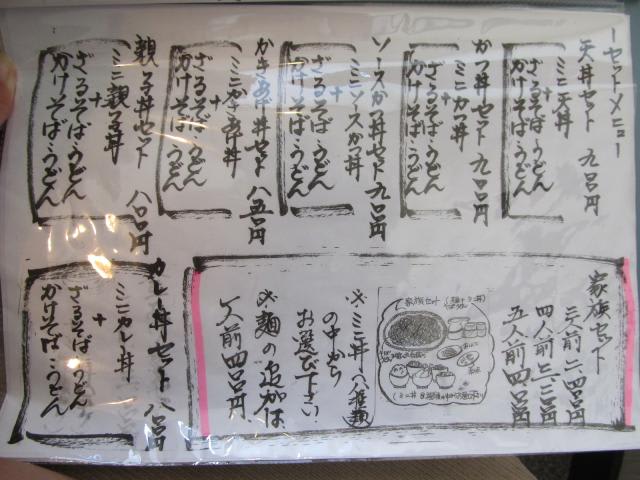 セットメニュー
天丼セット 九百円
ミニ天丼
+
ざるそば・うどん
かけそば・うどん
かつ丼セット 九百円
ミニカツ丼
+
ざるそば・うどん
かけそば・うどん
ソースかつ丼セット 九百円
ミニソースかつ丼
+
ざるそば・うどん
かけそば・うどん
かきあげ丼セット 八五〇円
ミニかきあげ丼
+
ざるそば・うどん
かけそば・うどん
親子丼セット 八〇〇円
ミニ親子丼
+
ざるそば・うどん
かけそば・うどん
家族セット
三人前
四人前
五人前
家族セット
※ミニ丼八種類
の中から
お選び下さい
※麺の追加は
一人前四百円
カレー丼セット 八百円
ミニカレー丼
+
ざるそば・うどん
かけそば・うどん